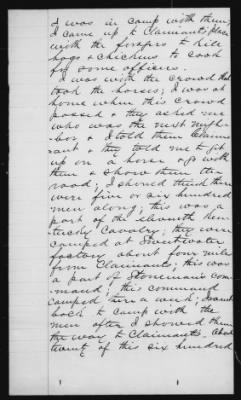 I was in camp with them;
I came up to Claimant's place
with the foragers to kill
hogs & chickens to cook
for some officers.
I was with the crowd that
took the horses; I was at
home when this crowd
passed & they asked me
who was the next neigh-
bor & I told them Claim-
ant & they told me to get
up on a horse & go with
them & show them the
road; I showed them there
were five or six hundred
men along; this was a
part of the eleventh Ken-
tucky Cavalry; they were
camped at Sweetwater
factory about four miles
from Claimants; this was
a part of Stoneman's com-
mand; this command
camped there a week; I went
back to camp with the
men after I showed them
the way to Claimants. About
twenty of this six hundred